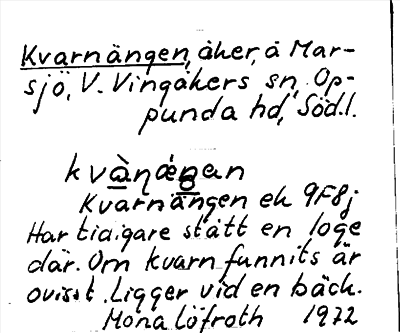 Kvarnängen, åker, å Mar-
sjö, V. Vingåkers sn, Op-
punda hd, Södl.
Kvarnängen ek 9F8j
Har tidigare stått en loge
där. Om kvarn funnits är
ovisst. Ligger vid en bäck.
Mona Löfroth 1972